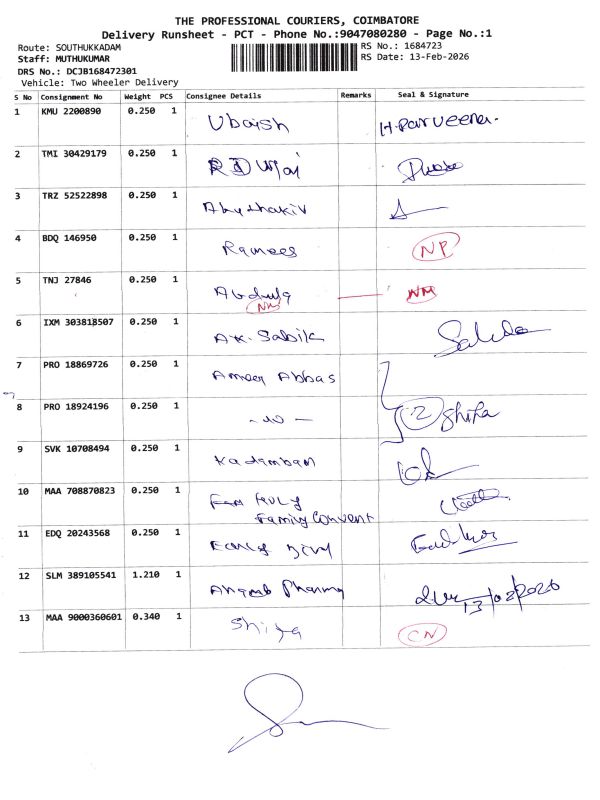 THE PROFESSIONAL COURIERS, COIMBATORE
Delivery Runsheet - PCT - Phone No.:9047080280 - Page No.:1
Route: SOUTHUKKADAM
RS No.: 1684723
Staff: MUTHUKUMAR
RS Date: 13-Feb-2026
DRS No.: DCJB168472301
Vehicle: Two Wheeler Delivery
S No Consignment No Weight PCS Consignee Details Remarks Seal & Signature
1 KMU 2200890 0.250 1 Ubaish H.Parveena.
2 TMI 30429179 0.250 1
3 TRZ 52522898 0.250 1
4 BDQ 146950 0.250 1 Ramees NP
5 TNJ 27846 0.250 1 Abdula NM
NM
6 IXM 303818507 0.250 1 A.K. Sabik
7 PRO 18869726 0.250 1 Ameer Abbas
8 PRO 18924196 0.250 1 2 Shifa
9 SVK 10708494 0.250 1 Kadamban
10 MAA 708870823 0.250 1
Family Convent
11 EDQ 20243568 0.250 1
12 SLM 389105541 1.210 1 Pharma 13/02/2026
13 MAA 9000360601 0.340 1 Shifa CN